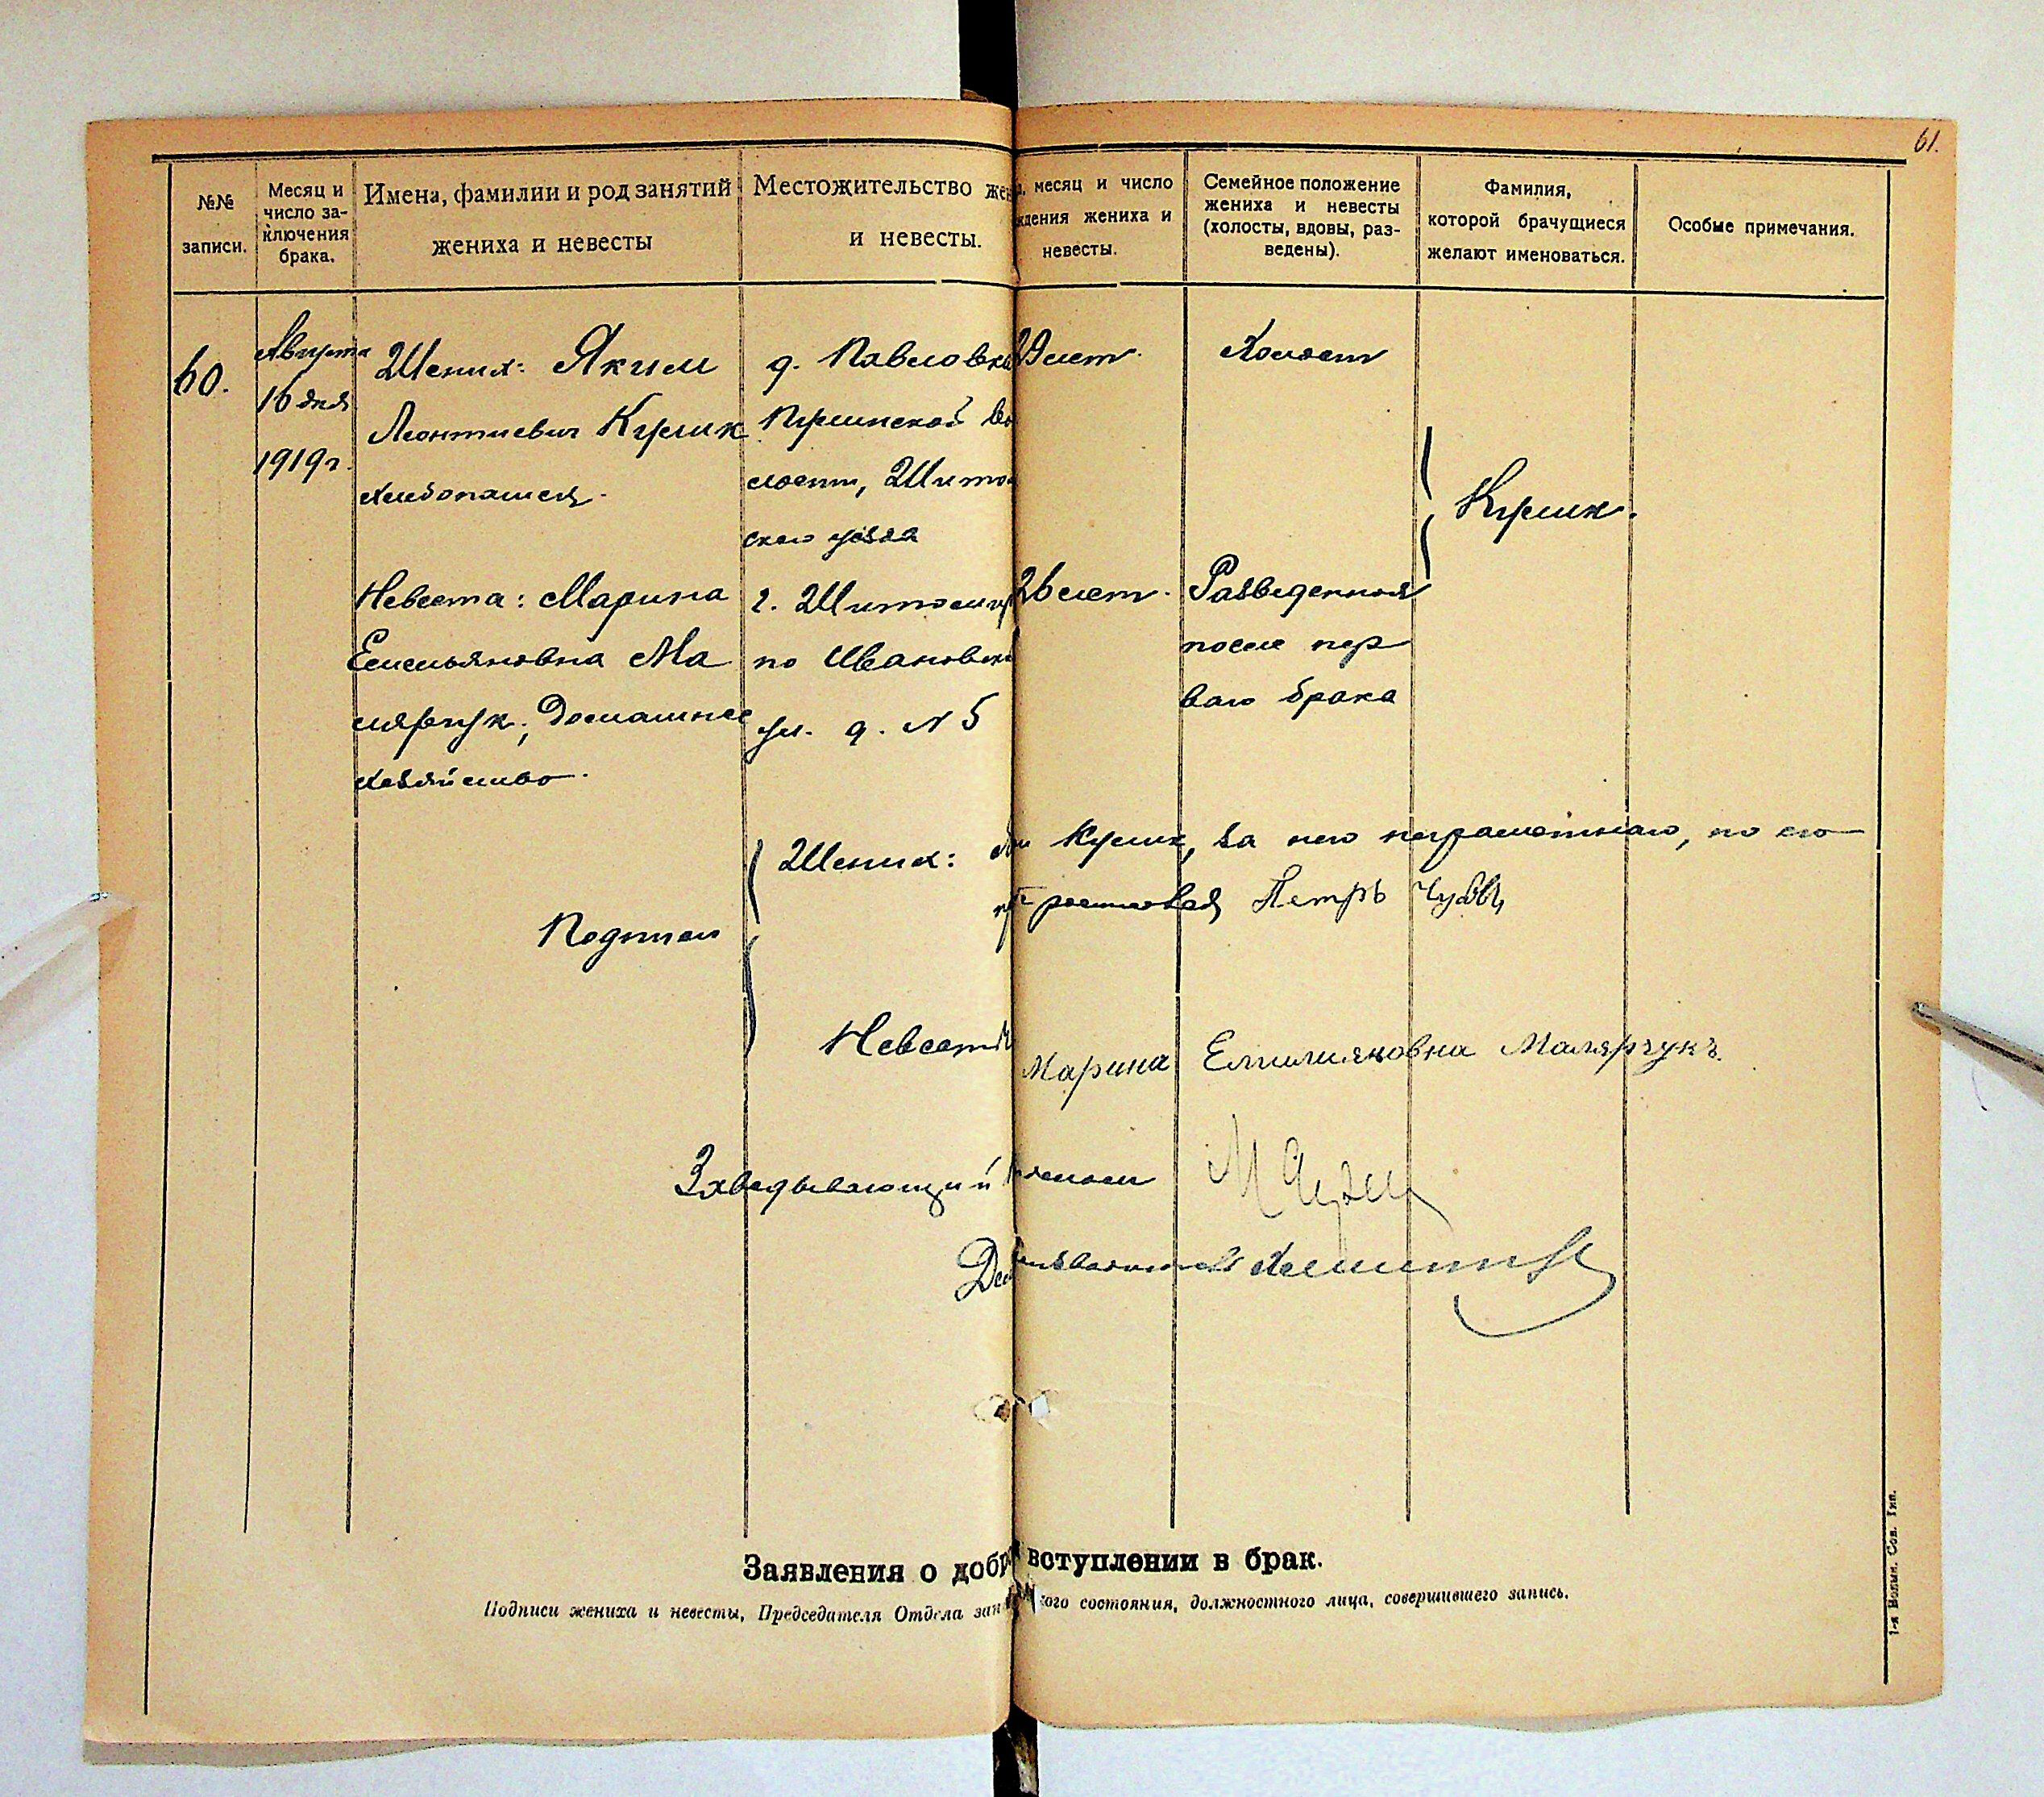 61.
№№ записи.
Месяц и число заключения брака.
Имена, фамилии и род занятий жениха и невесты
Местожительство жен
и невесты.
месяц и число
ждения жениха и
невесты.
Семейное положение
жениха и невесты
(холосты, вдовы, раз-
ведены).
Фамилия,
которой брачущиеся
желают именоваться.
Особые примечания.
60.
Августа
16 дня
1919 г.
Жених: Яким
Леонтиевич Кулик
хлебопашец.
д. Павловка
Пулинской Во
лости, Жито
ского уезда
29 лет.
Холост
Кулик.
Невеста: Марина
Емельяновна Ма
лярчук, Домашнее
хозяйство.
г. Житомир
по Ивановск
ул. д. № 5
26 лет.
Разведенная
после пер
вого брака
Подписи
Жених:
Кулик, за него неграмотного, по его
Петръ
Невеста
Марина Емилияновна Малярчукъ
Заведывающий
Заявления о добр вступлении в брак.
Подписи жениха и невесты, Председателя Отдела зап ого состояния, должностного лица, совершившего запись.
1-я Волын. Сов. Тип.